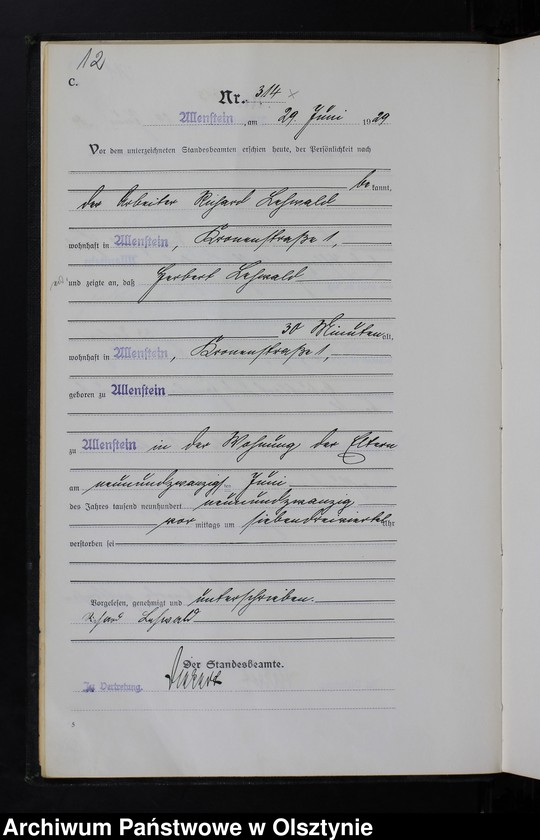 12
C.
Nr. 314
Allenstein, am 29. Juni 1929
Vor dem unterzeichneten Standesbeamten erschien heute, der Persönlichkeit nach
bekannt,
der Arbeiter Richard Lehwald
wohnhaft in Allenstein, Kronenstraße 1,
und zeigte an, daß Herbert Lehwald
30 Minuten alt,
wohnhaft in Allenstein, Kronenstraße 1,
geboren zu Allenstein
zu Allenstein in der Wohnung der Eltern
am neunundzwanzigten Juni
des Jahres tausend neunhundert neunundzwanzig
vormittags um siebendreiviertel Uhr
verstorben sei
Vorgelesen, genehmigt und unterschrieben.
Richard Lehwald
Der Standesbeamte.
In Vertretung.
5
Archiwum Państwowe w Olsztynie